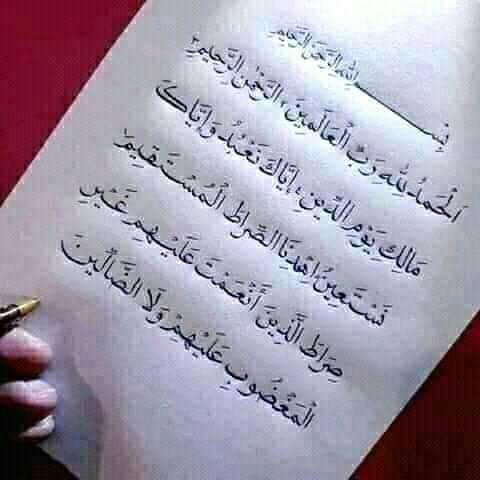 بِسْمِ اللهِ الرَّحْمَنِ الرَّحِيمِ
الْحَمْدُ لِلهِ رَبِّ الْعَالَمِينَ، الرَّحْمَنِ الرَّحِيمِ،
مَالِكِ يَوْمِ الدِّينِ، إِيَّاكَ نَعْبُدُ وَإِيَّاكَ
نَسْتَعِينُ، اهْدِنَا الصِّرَاطَ الْمُسْتَقِيمَ،
صِرَاطَ الَّذِينَ أَنْعَمْتَ عَلَيْهِمْ غَيْرِ
الْمَغْضُوبِ عَلَيْهِمْ وَلَا الضَّالِّينَ